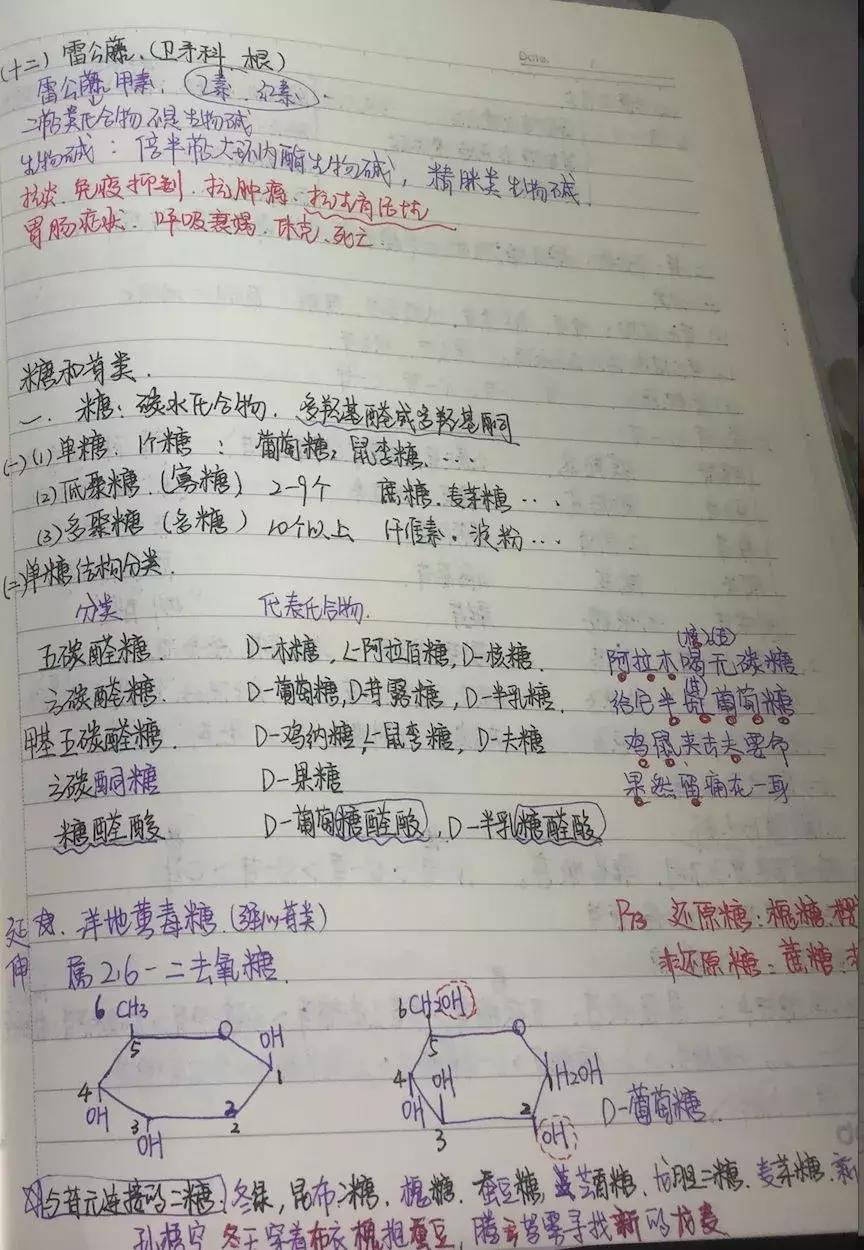 Date.
(十二) 雷公藤、(卫矛科、根)
雷公藤甲素、乙素、红素.
二萜类化合物不是生物碱
生物碱：倍半萜大环内酯生物碱，精脒类生物碱.
抗炎.免疫抑制.抗肿瘤.抗生育活性
胃肠症状.呼吸衰竭.休克、死亡.
糖和苷类.
一. 糖：碳水化合物. 多羟基醛或多羟基酮
(一)(1)单糖. 1个糖 ： 葡萄糖, 鼠李糖. …
(2)低聚糖.(寡糖) 2-9个 蔗糖.麦芽糖…
(3)多聚糖 (多糖) 10个以上 纤维素。淀粉…
(二)单糖结构分类.
分类 代表化合物.
五碳醛糖. D-木糖, L-阿拉伯糖, D-核糖. 阿拉木喝无碳糖
(核)
六碳醛糖. D-葡萄糖, D-甘露糖, D-半乳糖. 给尼半 葡萄糖
甲基五碳醛糖. D-鸡纳糖, L-鼠李糖, D-夫糖 鸡鼠夹击夫要命
六碳酮糖 D-果糖 果然 痛在一身
糖醛酸 D-葡萄糖醛酸, D-半乳糖醛酸
延伸 洋地黄毒糖.(强心苷类)
属2,6-二去氧糖.
P73 还原糖：槐糖.樱
非还原糖：蔗糖.
6 CH3 5 O OH 1 4 OH 3 OH 2 2
6CH2OH 5 O 4 OH OH 3 2 OH 1 H2OH
D-葡萄糖.
与苷元连接的二糖：冬绿,昆布二糖.槐糖.蚕豆糖,芸香糖.龙胆二糖.麦芽糖.新
孙悟空 冬天穿着布衣 槐抱蚕豆, 腾云驾雾寻找新的龙麦